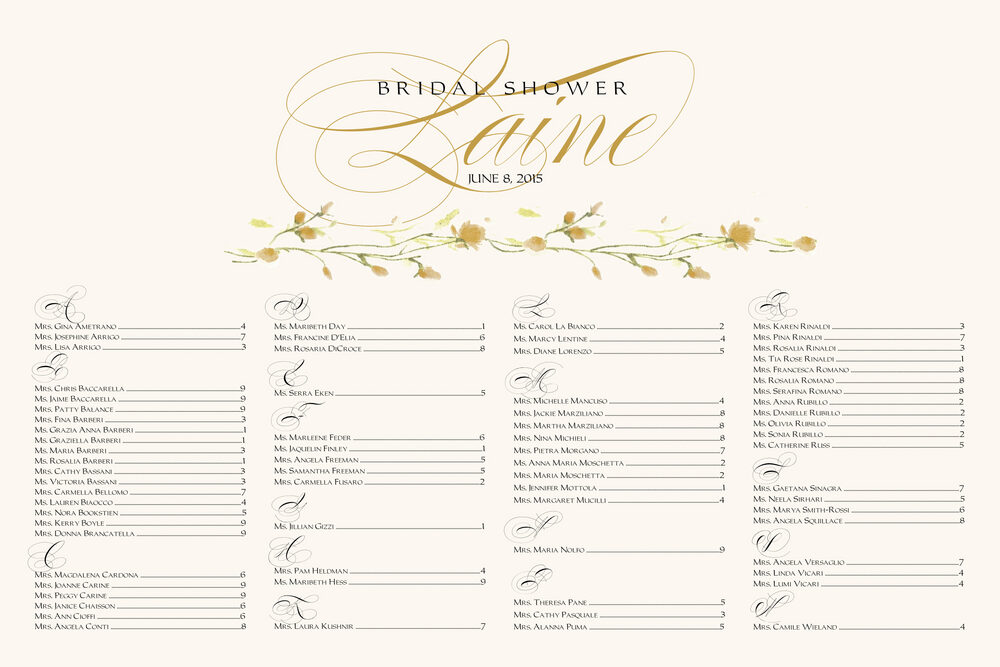 BRIDAL SHOWER
Laine
JUNE 8, 2015
A
Mrs. Gina Ametrano 4
Mrs. Josephine Arrigo 7
Mrs. Lisa Arrigo 3
B
Mrs. Chris Baccarella 9
Ms. Jaime Baccarella 9
Mrs. Patty Balance 9
Mrs. Fina Barberi 3
Ms. Grazia Anna Barberi 1
Ms. Graziella Barberi 1
Ms. Maria Barberi 3
Ms. Rosalia Barberi 1
Mrs. Cathy Bassani 3
Ms. Victoria Bassani 3
Mrs. Carmella Bellomo 7
Ms. Lauren Biaocco 4
Mrs. Nora Bookstien 5
Mrs. Kerry Boyle 9
Mrs. Donna Brancatella 9
C
Mrs. Magdalena Cardona 6
Mrs. Joanne Carine 9
Mrs. Peggy Carine 9
Mrs. Janice Chaisson 6
Mrs. Ann Cioffi 6
Mrs. Angela Conti 8
D
Ms. Maribeth Day 1
Mrs. Francine D'Elia 6
Mrs. Rosaria DiCroce 8
E
Ms. Serra Eken 5
F
Ms. Marleene Feder 6
Ms. Jaquelin Finley 1
Mrs. Angela Freeman 5
Ms. Samantha Freeman 5
Mrs. Carmella Fusaro 2
G
Ms. Jillian Gizzi 1
H
Mrs. Pam Heldman 4
Ms. Maribeth Hess 9
K
Mrs. Laura Kushnir 7
L
Ms. Carol La Bianco 2
Ms. Marcy Lentine 4
Mrs. Diane Lorenzo 5
M
Mrs. Michelle Mancuso 4
Mrs. Jackie Marziliano 8
Mrs. Martha Marziliano 8
Mrs. Nina Michieli 8
Mrs. Pietra Morgano 7
Ms. Anna Maria Moschetta 2
Mrs. Maria Moschetta 2
Ms. Jennifer Mottola 1
Mrs. Margaret Mucilli 4
N
Mrs. Maria Nolfo 9
P
Mrs. Theresa Pane 5
Mrs. Cathy Pasquale 3
Mrs. Alanna Puma 5
R
Mrs. Karen Rinaldi 3
Mrs. Pina Rinaldi 7
Mrs. Rosalia Rinaldi 3
Ms. Tia Rose Rinaldi 1
Mrs. Francesca Romano 8
Ms. Rosalia Romano 8
Mrs. Serafina Romano 8
Mrs. Anna Rubillo 2
Mrs. Danielle Rubillo 2
Ms. Olivia Rubillo 2
Ms. Sonia Rubillo 2
Ms. Catherine Russ 5
S
Mrs. Gaetana Sinagra 7
Ms. Neela Sirhari 5
Mrs. Marya Smith-Rossi 6
Mrs. Angela Squillace 8
V
Mrs. Angela Versaglio 7
Mrs. Linda Vicari 4
Mrs. Lumi Vicari 4
W
Mrs. Camile Wieland 4